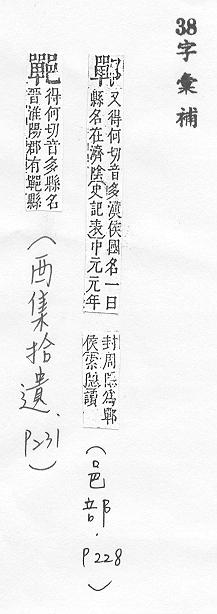 38字彙補
鄲
又得何切音多漢侯國名一曰
縣名在濟陰史記表中元元年
封周應爲鄲
侯索隱讀
（邑部．P228）
得何切音多縣名
晉淮陽郡有縣
（酉集拾遺．P231）